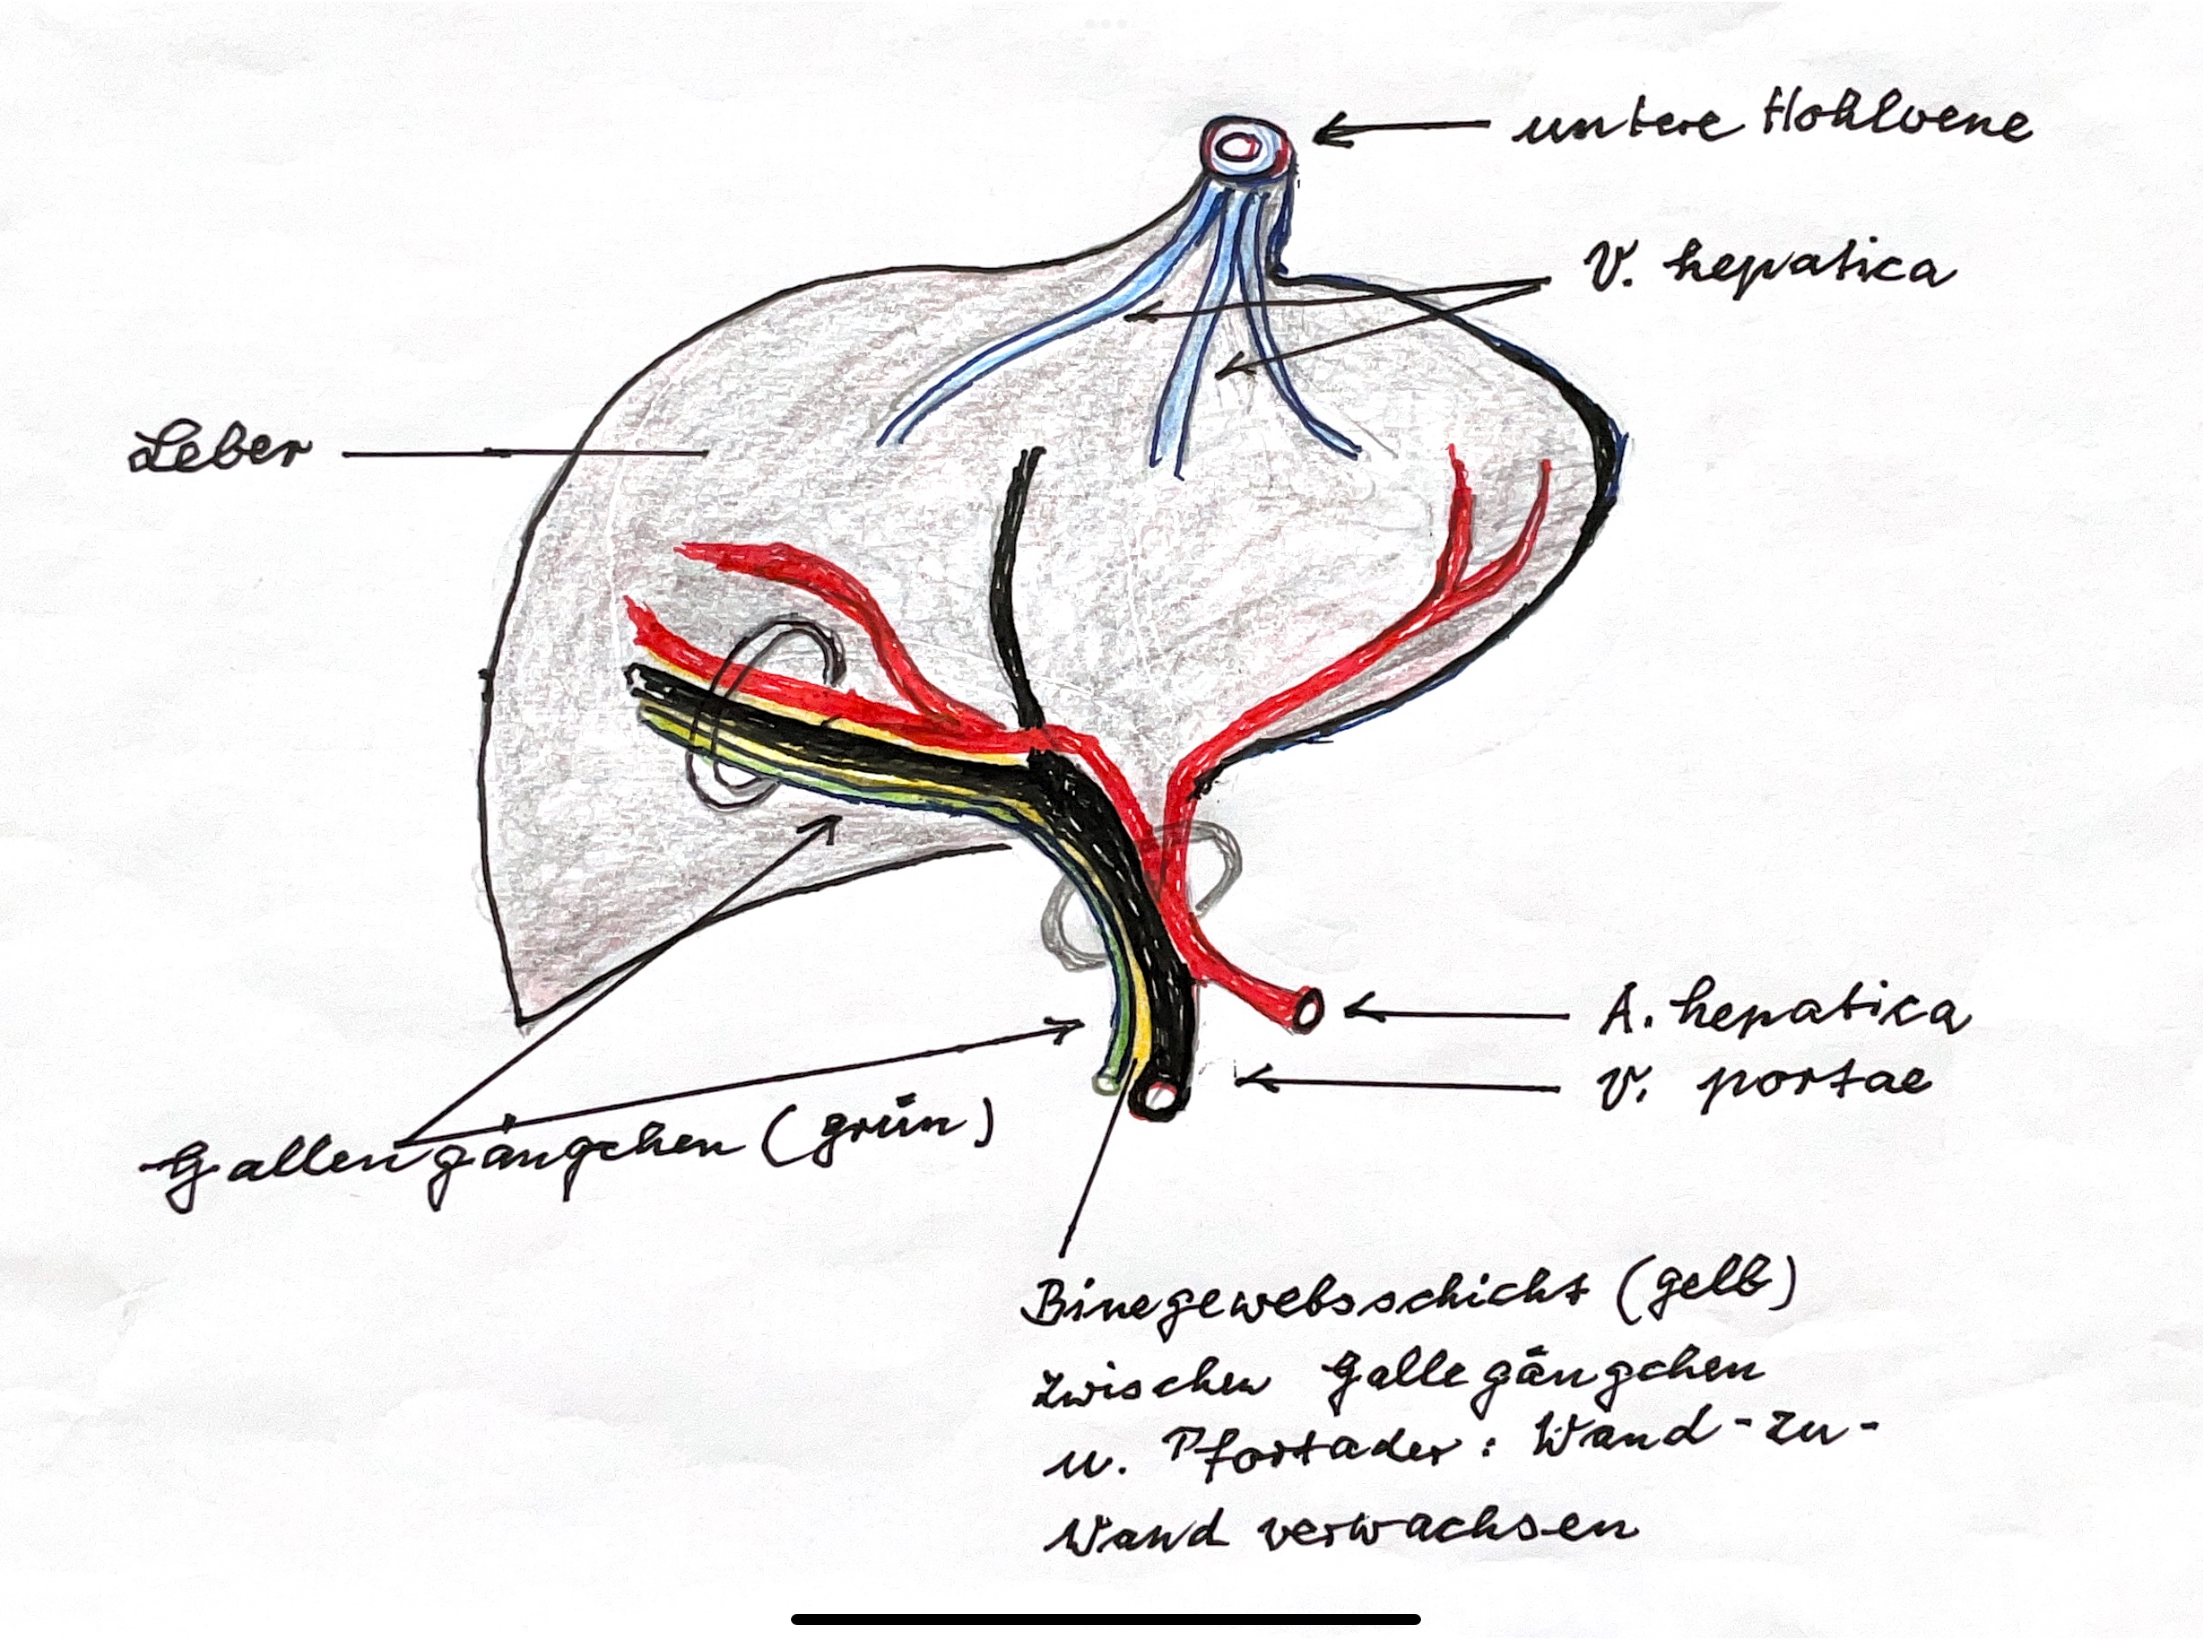 untere Hohlvene
V. hepatica
Leber
A. hepatica
V. portae
Gallengängchen (grün)
Binegewebsschicht (gelb)
zwischen Gallegängchen
u. Pfortader: Wand-zu-
Wand verwachsen